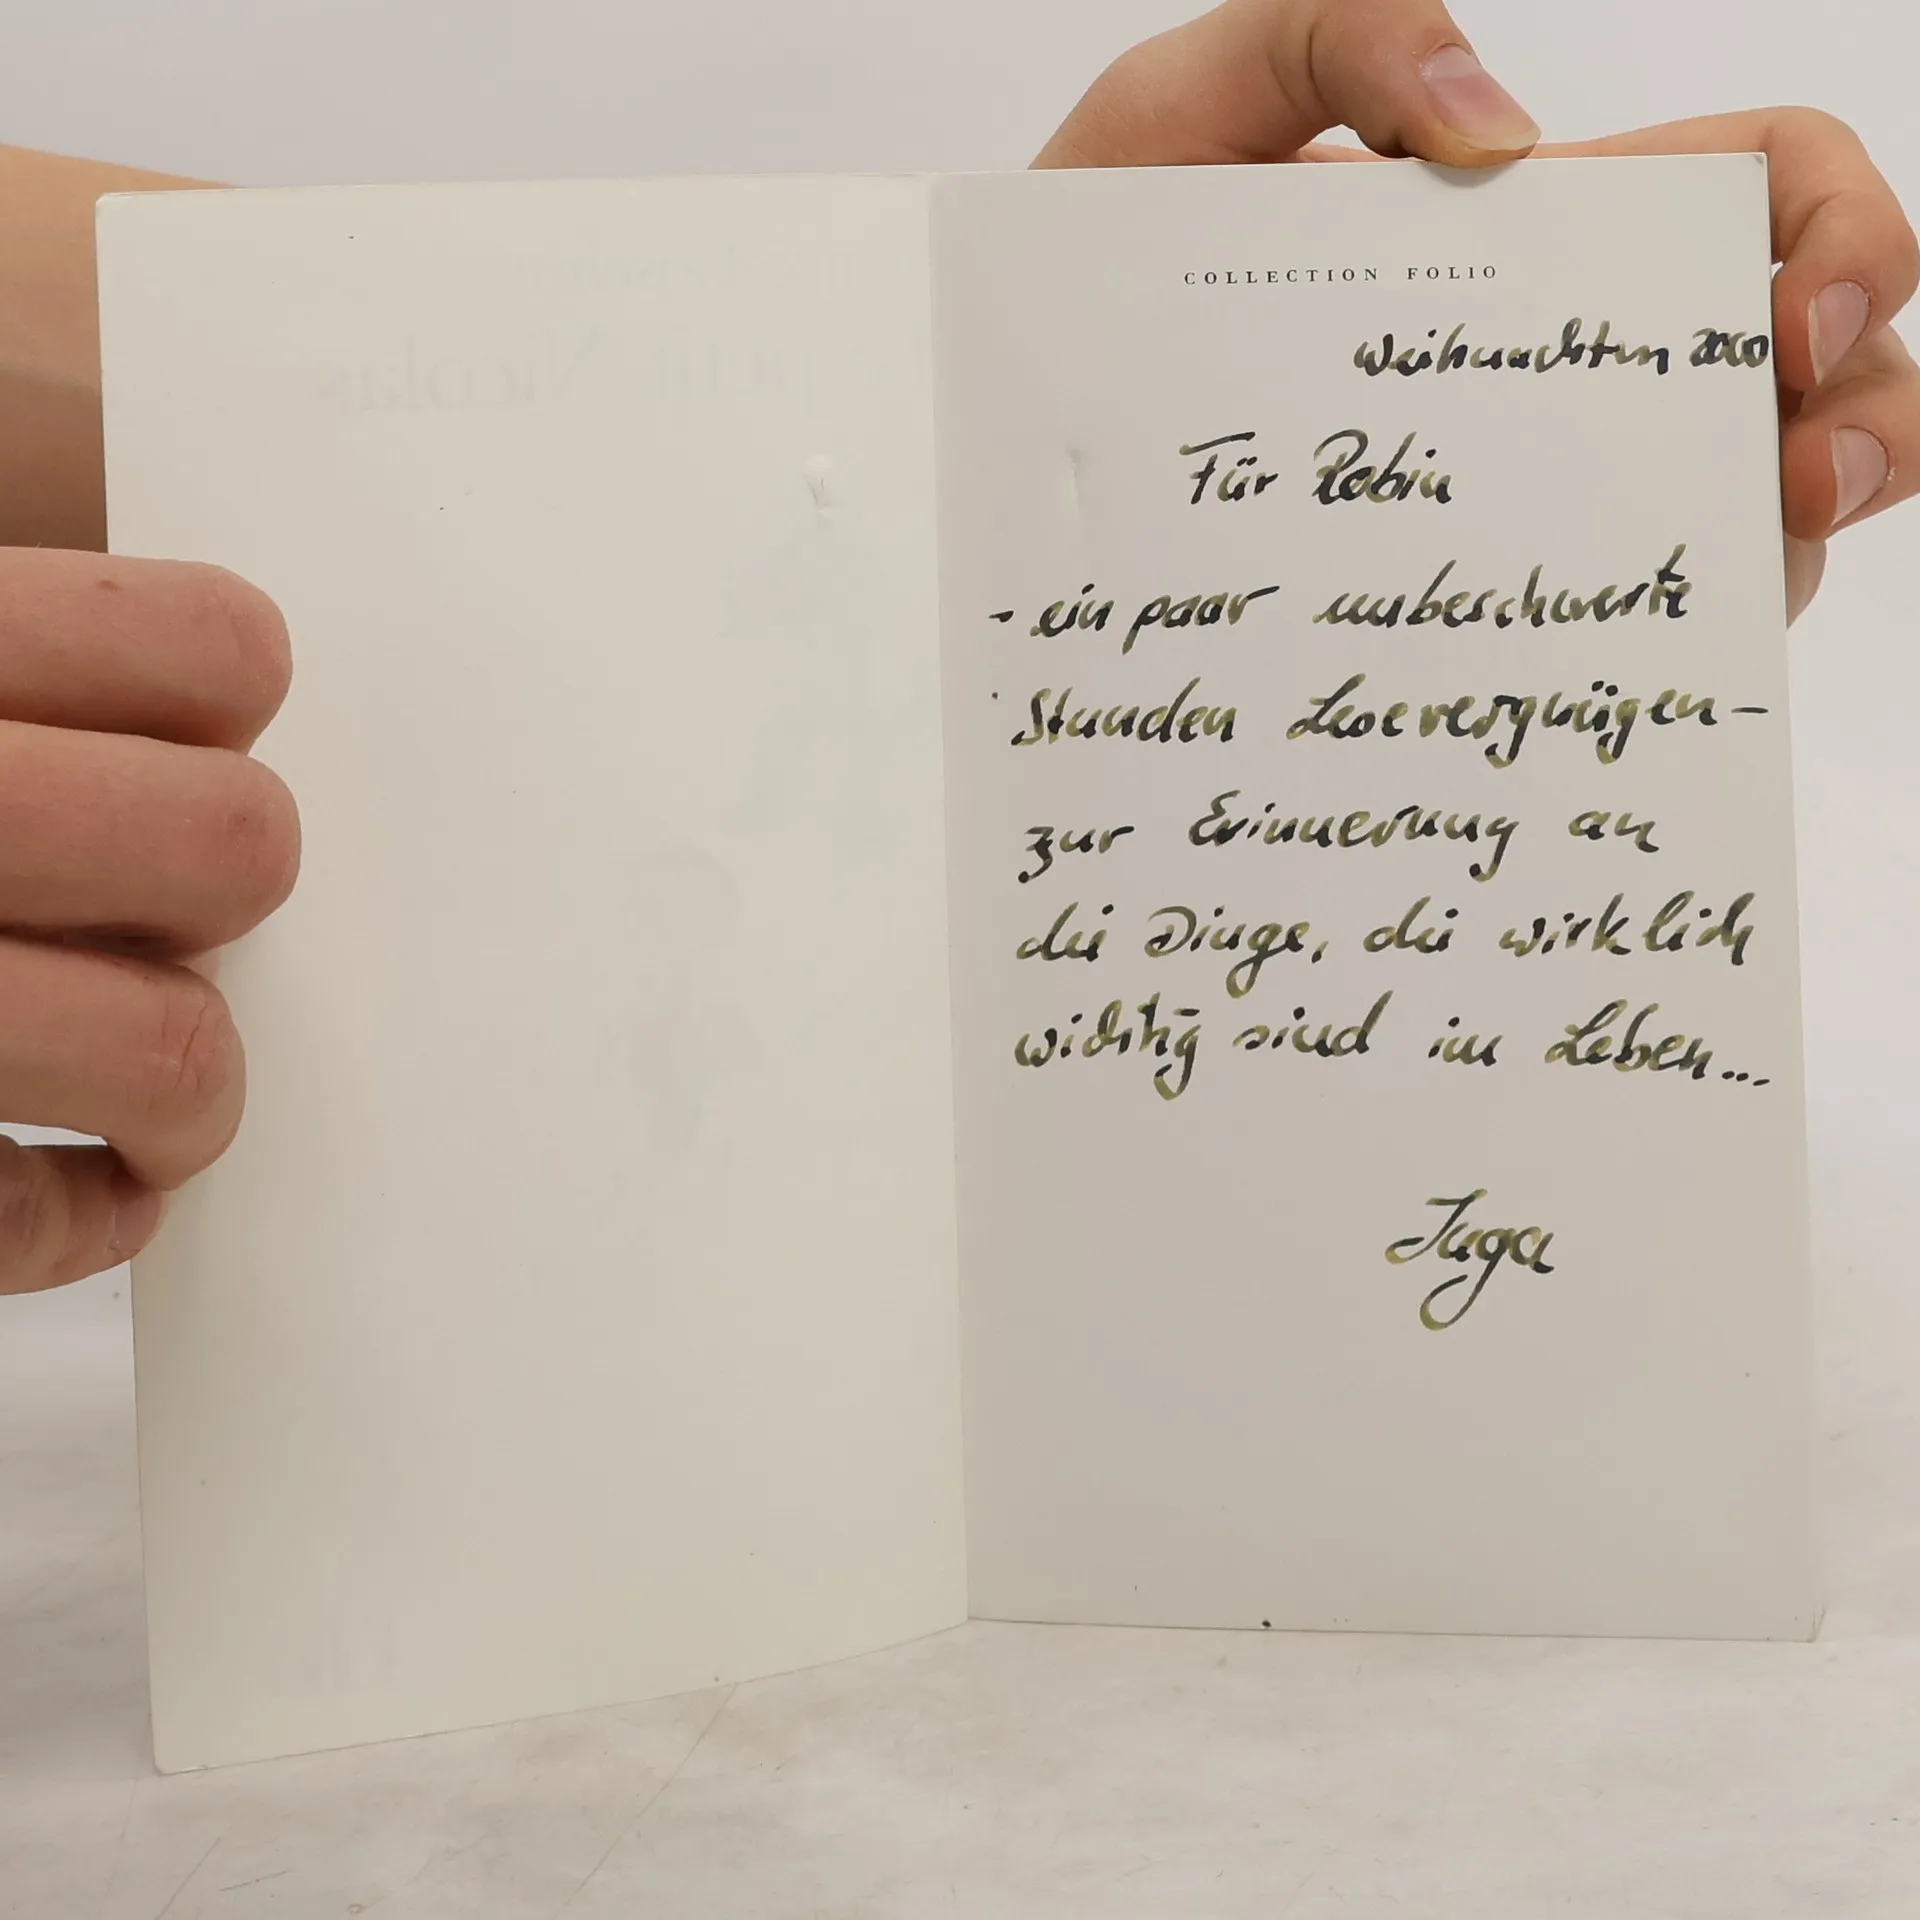 Nicolas
COLLECTION FOLIO
Weihnachten 2000
Für Robin
- ein paar unbeschwerte
Stunden Lesevergnügen -
zur Erinnerung an
die Dinge, die wirklich
wichtig sind im Leben...
Inga